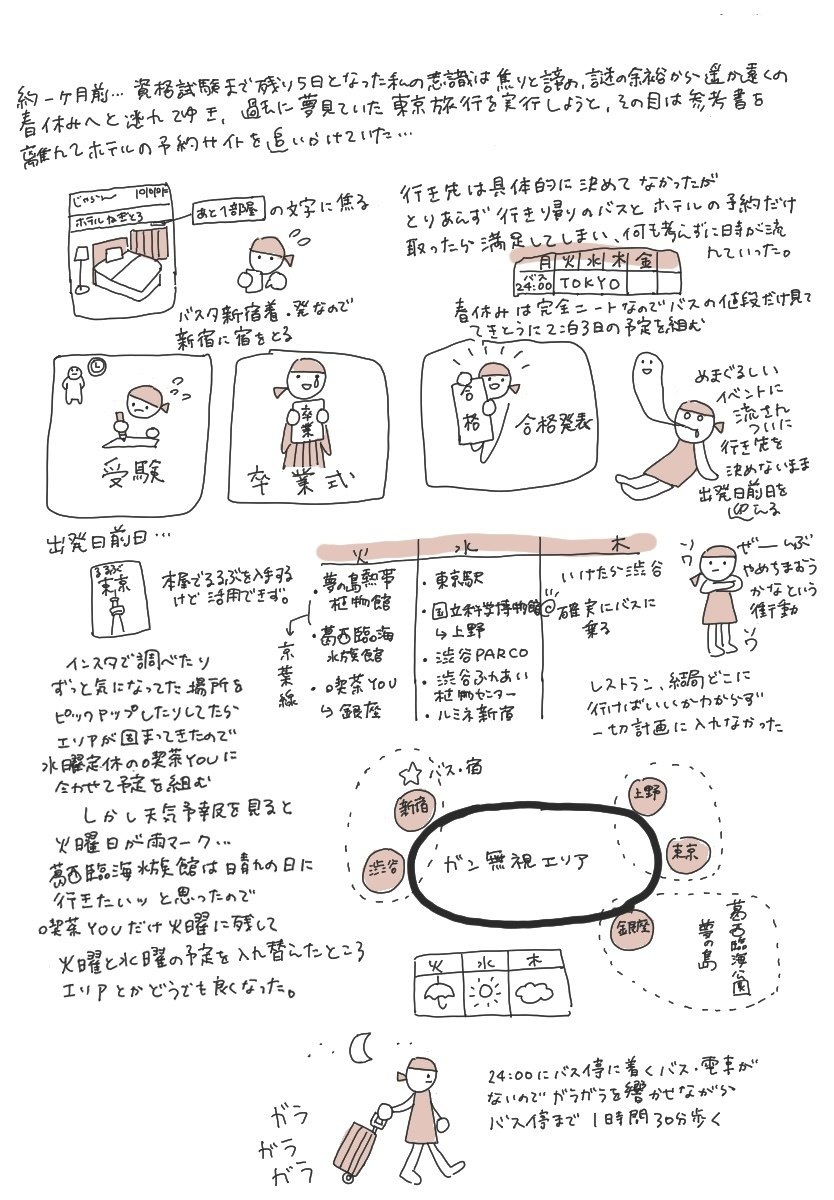 約一ヶ月前… 資格試験まで残り5日となった私の意識は焦りと諦め、謎の余裕から遥か遠くの
春休みへと逃れてゆき、過去に夢見ていた東京旅行を実行しようと、その目は参考書を
離れてホテルの予約サイトを追いかけていた…
じゃらん
ホテルねぎとろ
あと1部屋 の文字に焦る
バスタ新宿着・発なので
新宿に宿をとる
行き先は具体的に決めてなかったが
とりあえず行き帰りのバスとホテルの予約だけ
取ったら満足してしまい、何も考えずに日時が流
れていった。
月 火 水 木 金
バス
24:00 TOKYO
春休みは完全ニートなのでバスの値段だけ見て
てきとうに2泊3日の予定を組む
受験
卒業
卒業式
合格
合格発表
めまぐるしい
イベントに
流され
ついに
行き先を
決めないまま
出発日前日を
迎える
出発日前日…
るるぶ
東京
本屋でるるぶを入手する
けど活用できず。
インスタで調べたり
ずっと気になってた場所を
ピックアップしたりしてたら
エリアが固まってきたので
水曜定休の喫茶YOUに
合わせて予定を組む
しかし天気予報を見ると
火曜日が雨マーク…
葛西臨海水族館は晴れの日に
行きたいッと思ったので
喫茶YOUだけ火曜に残して
火曜と水曜の予定を入れ替えたところ
エリアとかどうでも良くなった。
火
・夢の島熱帯
植物館
・葛西臨海
水族館
京葉線
・喫茶YOU
↳銀座
水
・東京駅
・国立科学博物館
↳上野
・渋谷PARCO
・渋谷ふれあい
植物センター
・ルミネ新宿
木
いけたら渋谷
@確実にバスに
乗る
ソワ
ソワ
ぜーんぶ
やめちまおう
かなという
衝動
レストラン、結局どこに
行けばいいかわからず
一切計画に入れなかった
☆バス・宿
新宿
渋谷
ガン無視エリア
上野
東京
銀座
葛西臨海公園
夢の島
火 水 木
24:00にバス停に着くバス・電車が
ないのでガラガラを響かせながら
バス停まで1時間30分歩く
ガラ
ガラ
ガラ